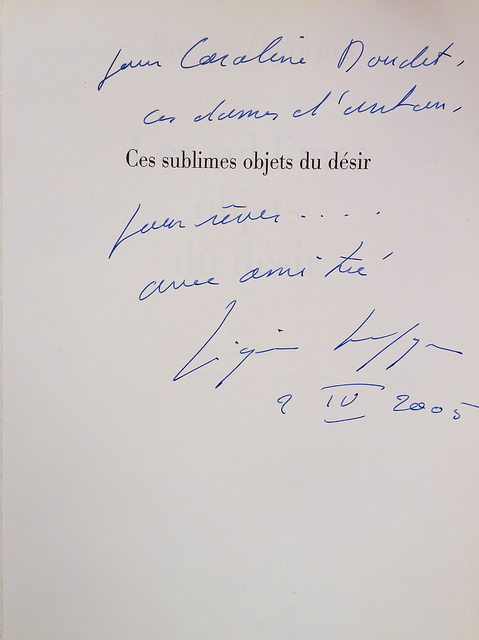 pour Caroline Doudet,
ces dames d'antan,
Ces sublimes objets du désir
pour rêver .....
avec amitié
2 IV 2005